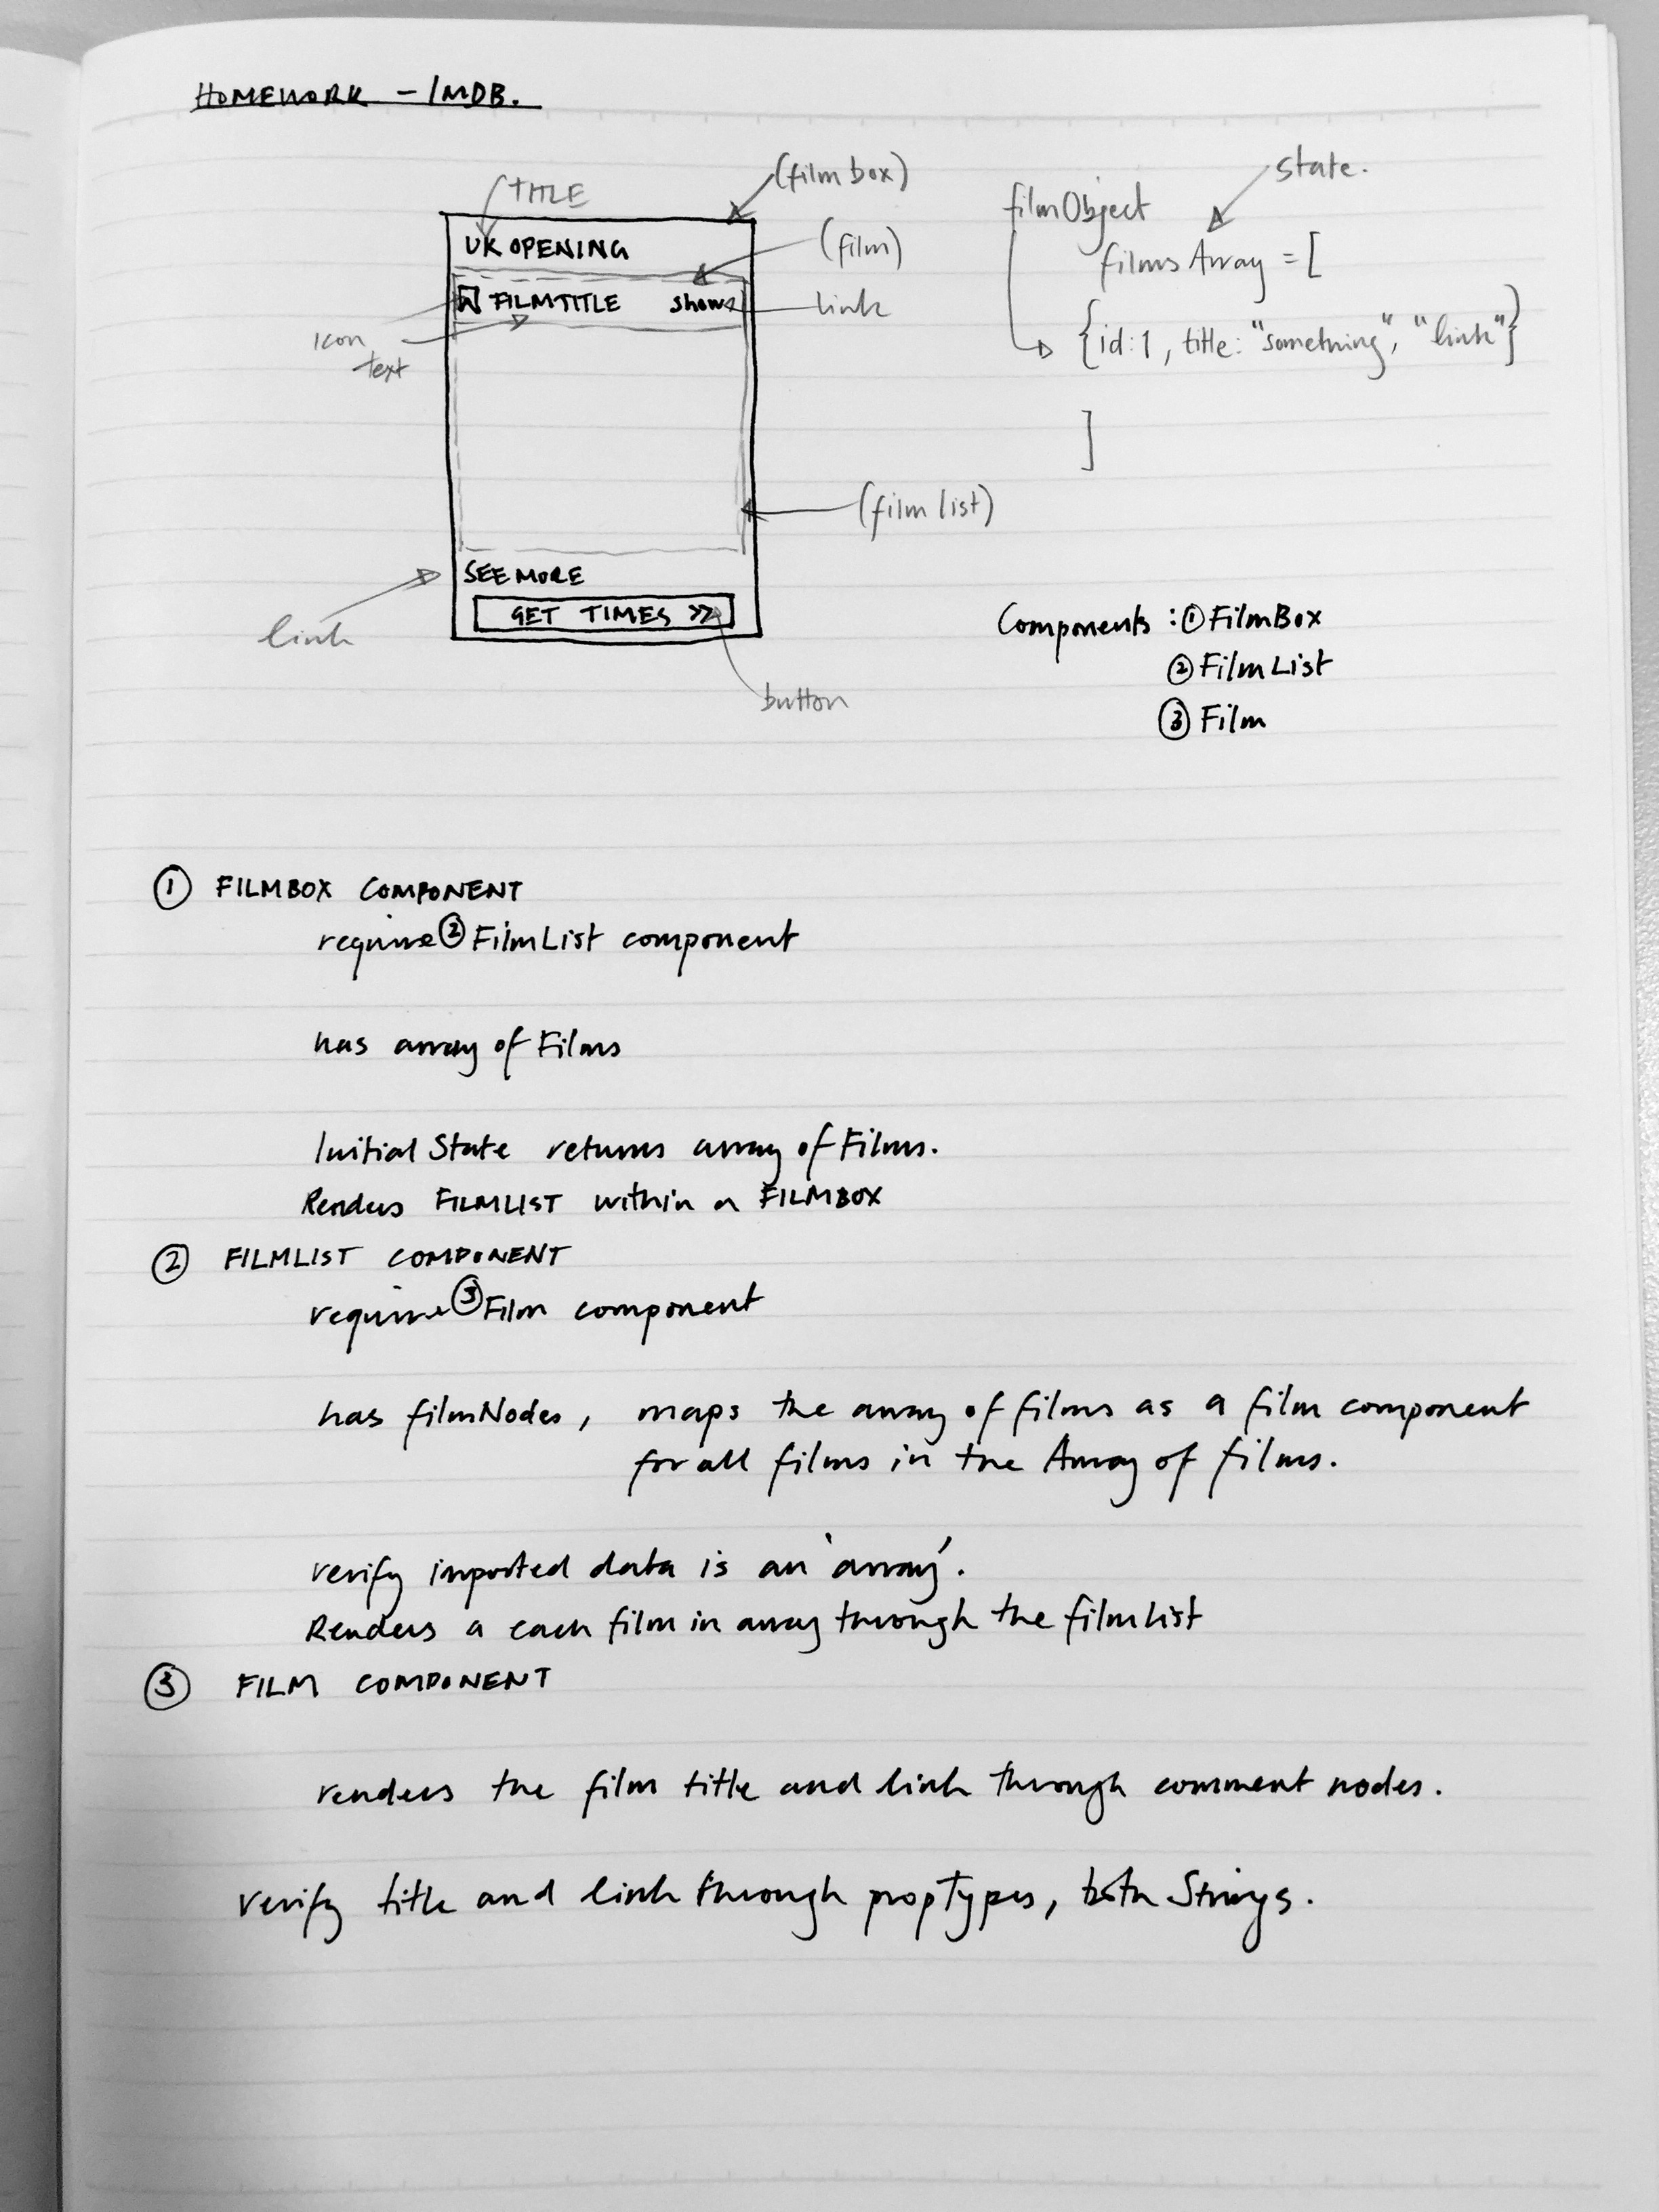 HOMEWORK - IMDB.
TITLE
(film box)
state.
filmObject
UK OPENING
(film)
filmsArray = [
FILMTITLE shows
link
icon
text
{id:1, title: "something", "link"}
]
(film list)
SEE MORE
GET TIMES >>
link
button
Components : ① FilmBox
② FilmList
③ Film
① FILMBOX COMPONENT
require ② FilmList component
has array of Films
Initial State returns array of Films.
Renders FILMLIST within a FILMBOX
② FILMLIST COMPONENT
require ③ Film component
has filmNodes, maps the array of films as a film component
for all films in the Array of films.
verify imported data is an 'array'.
Renders a each film in array through the filmlist
③ FILM COMPONENT
renders the film title and link through comment nodes.
verify title and link through propTypes, both Strings.